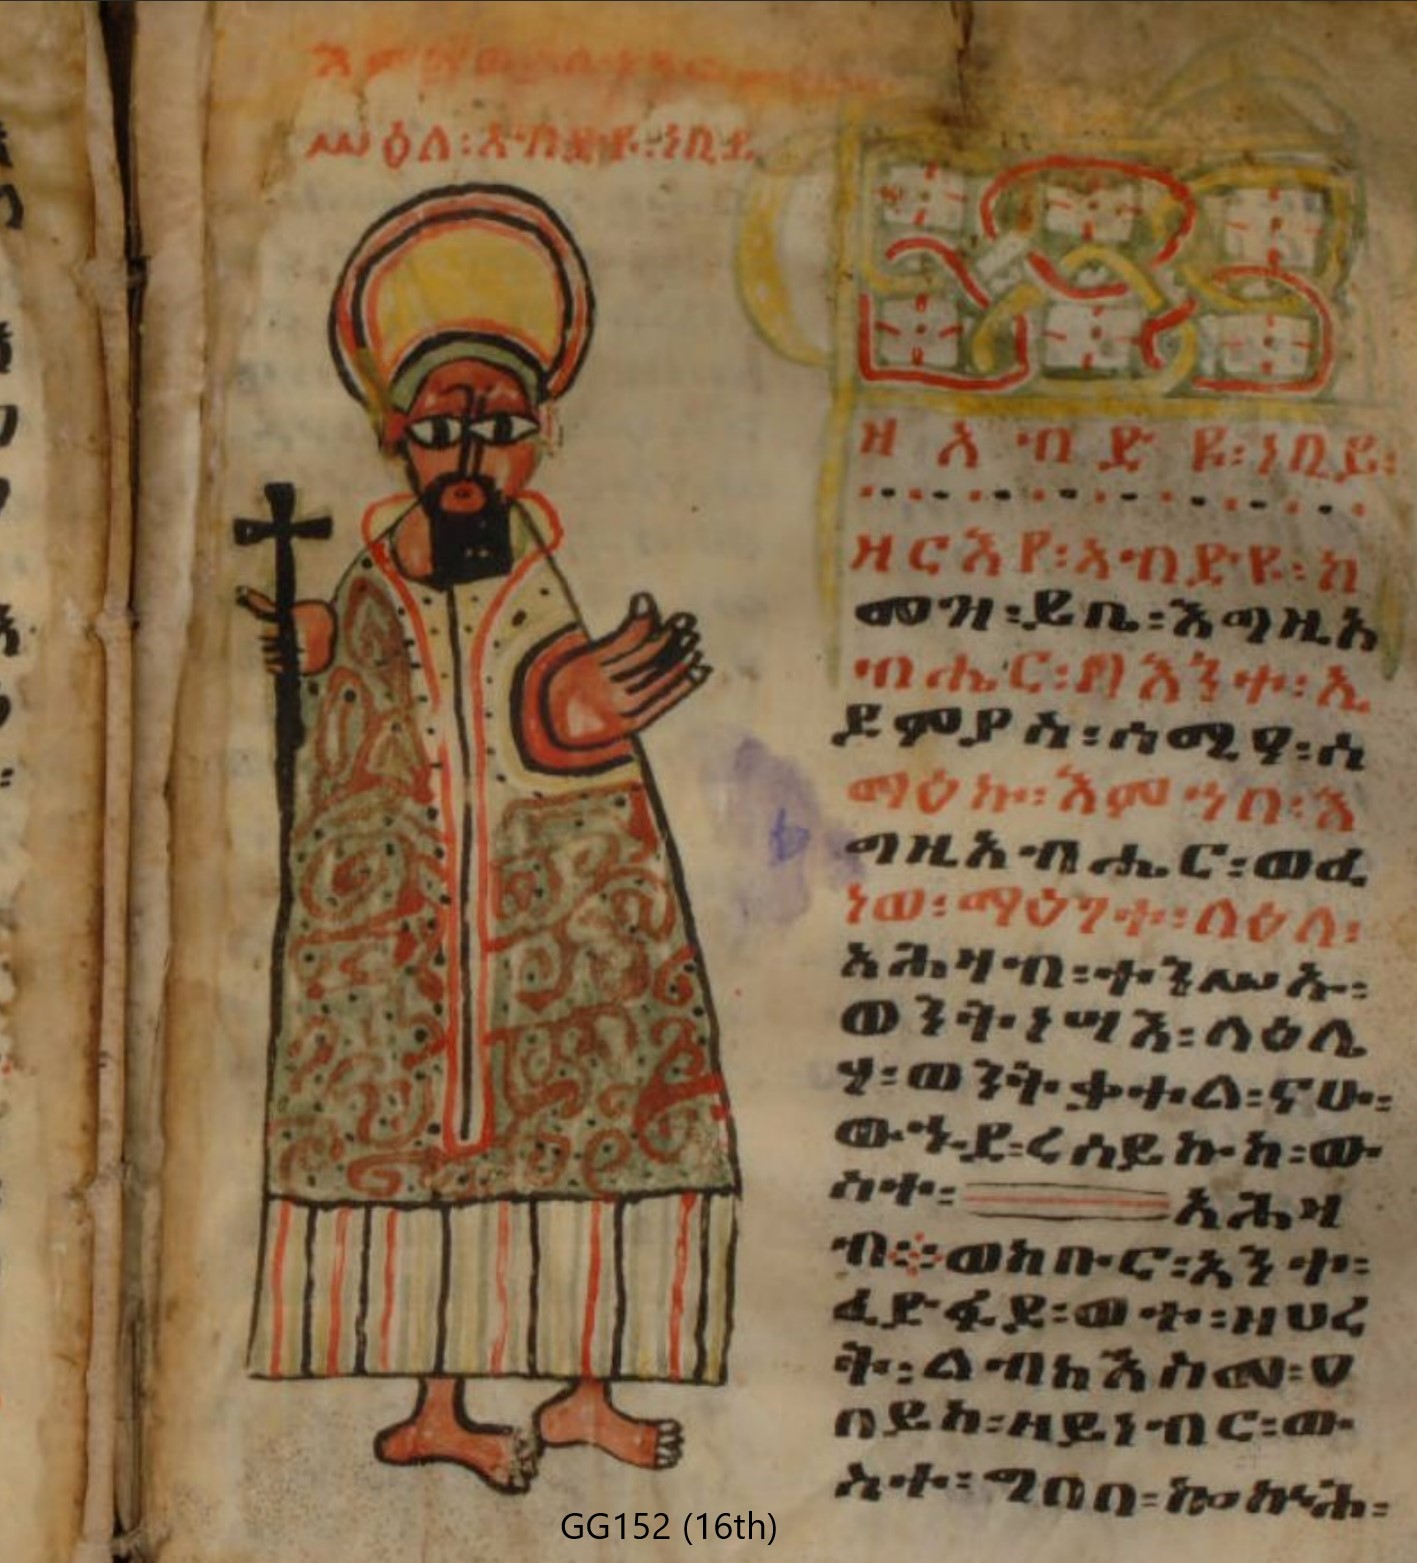 ሥዕለ፡አብድዩ፡ነቢይ
ዘአብድዩ፡ነቢይ፡
ዘርእየ፡አብድዩ፡ከ
መዝ፡ይቤ፡እግዚአ
ብሔር፡በእንተ፡ኢ
ዶምያስ፡ሰሚዓ፡ሰ
ማዕኩ፡እምኀበ፡እ
ግዚአብሔር፡ወፈ
ነወ፡ማዕገተ፡ላዕለ፡
አሕዛብ፡ተንሥኡ፡
ወንትነሣእ፡ላዕሌ
ሃ፡ወንትቃተል፡ናሁ፡
ውኁደ፡ረሰይኩከ፡ው
ስተ፡ አሕዛ
ብ፨ወክቡር፡አንተ፡
ፈድፋደ፡ወተ፡ዝህረ
ት፡ልብከእስመ፡ሀ
በይከ፡ዘይነብር፡ው
ስተ፡ግበበ፡ኰኵሕ፡
GG152 (16th)